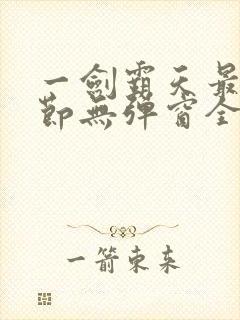 一劍霸天最
節無彈窗全
一箭東来